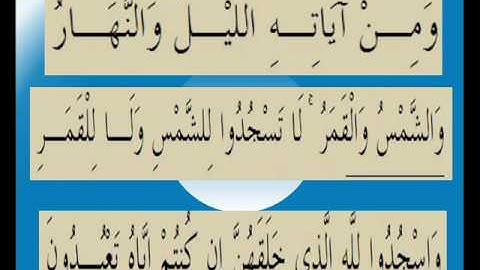 وَمِنْ آيَاتِهِ اللَّيْلُ وَالنَّهَارُ
وَالشَّمْسُ وَالْقَمَرُ ۚ لَا تَسْجُدُوا لِلشَّمْسِ وَلَا لِلْقَمَرِ
وَاسْجُدُوا لِلَّهِ الَّذِي خَلَقَهُنَّ إِن كُنتُمْ إِيَّاهُ تَعْبُدُونَ